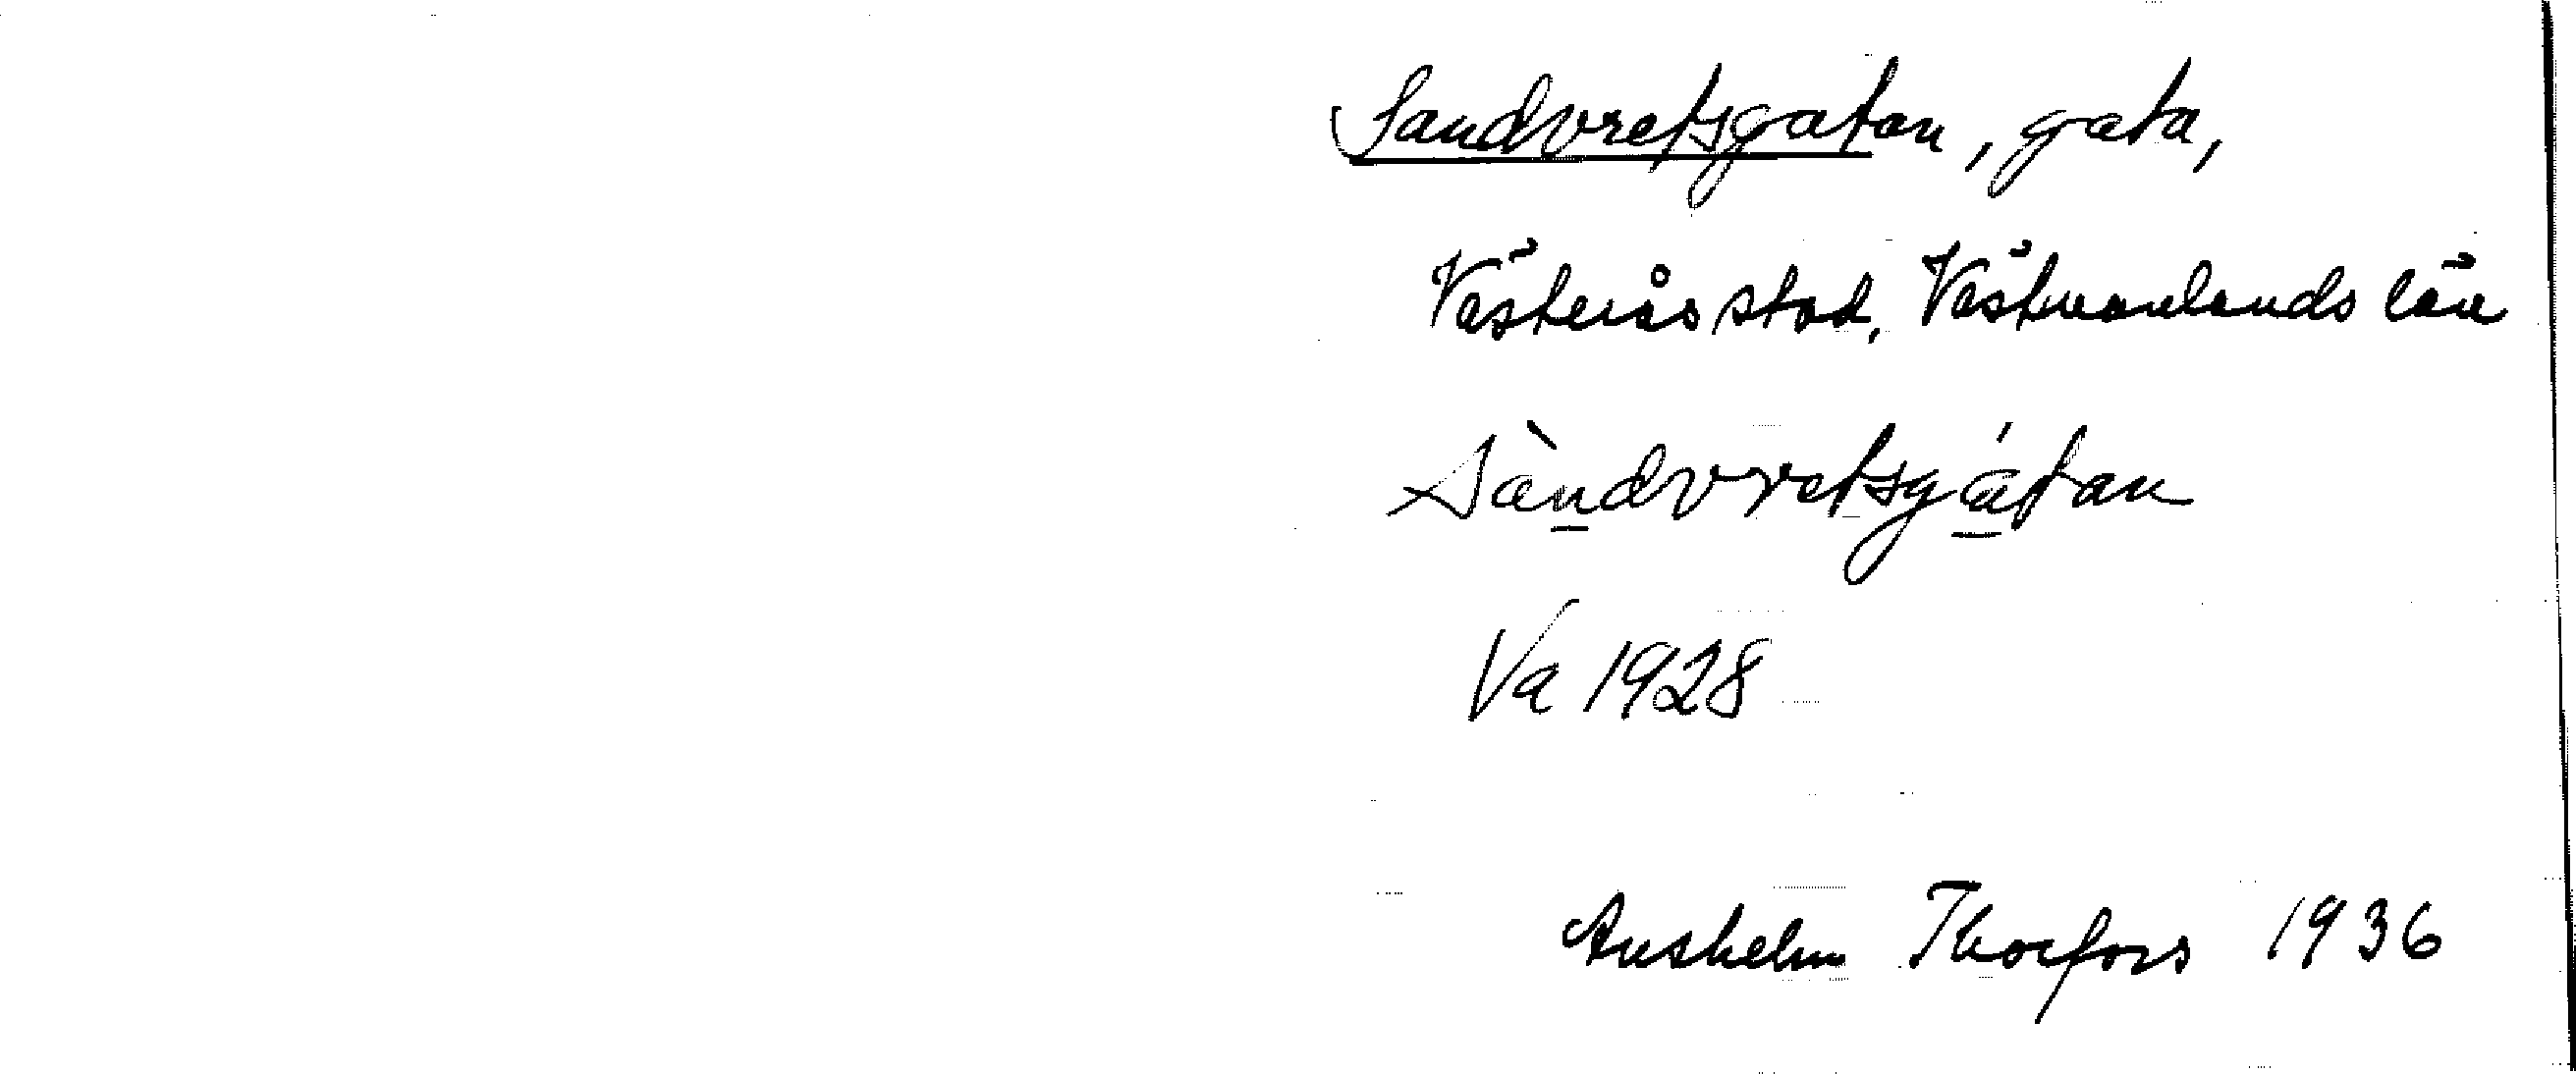 Sandvretsgatan, gata,
Västerås stad, Västmanlands län
Sàndvretsgátan
Va 1928
Anshelm Thorfors 1936